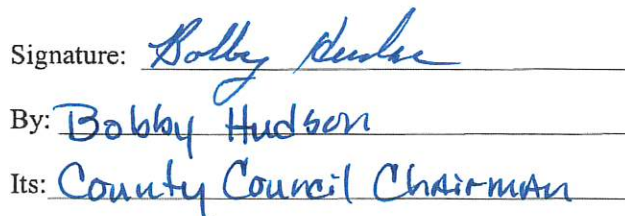 Signature: Bobby Hudson
By: Bobby Hudson
Its: County Council Chairman